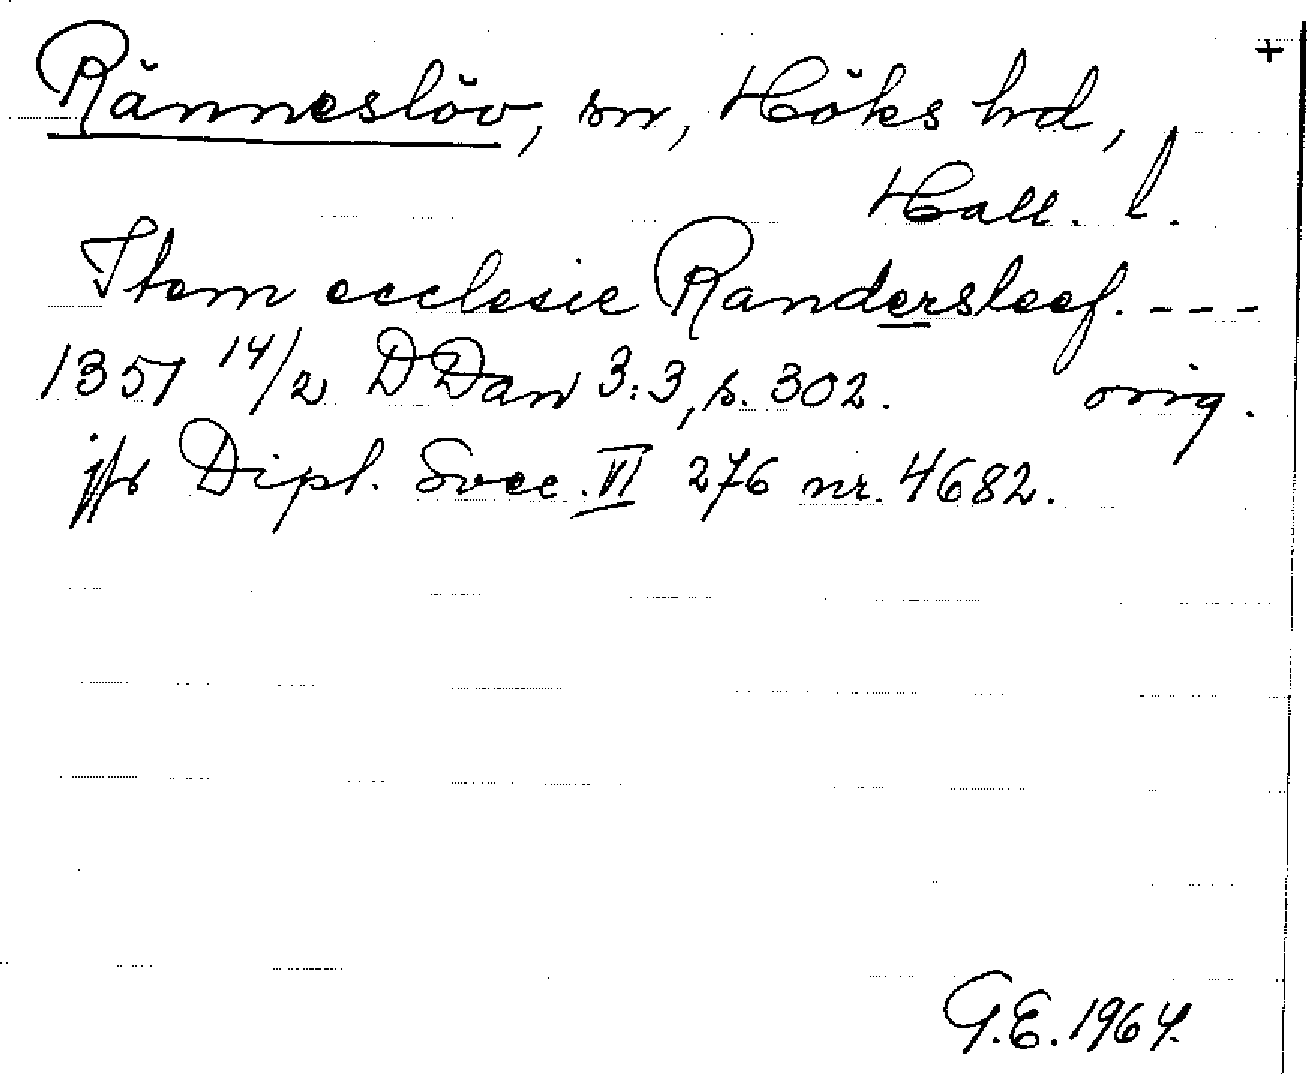 Ränneslöv, sn, Höks hd, +
Hall. l.
Item ecclesie Randersleef. ---
1351 14/2 DDan 3:3, s. 302. orig.
jfr Dipl. Svec. VI 276 nr. 4682.
G.E. 1964.